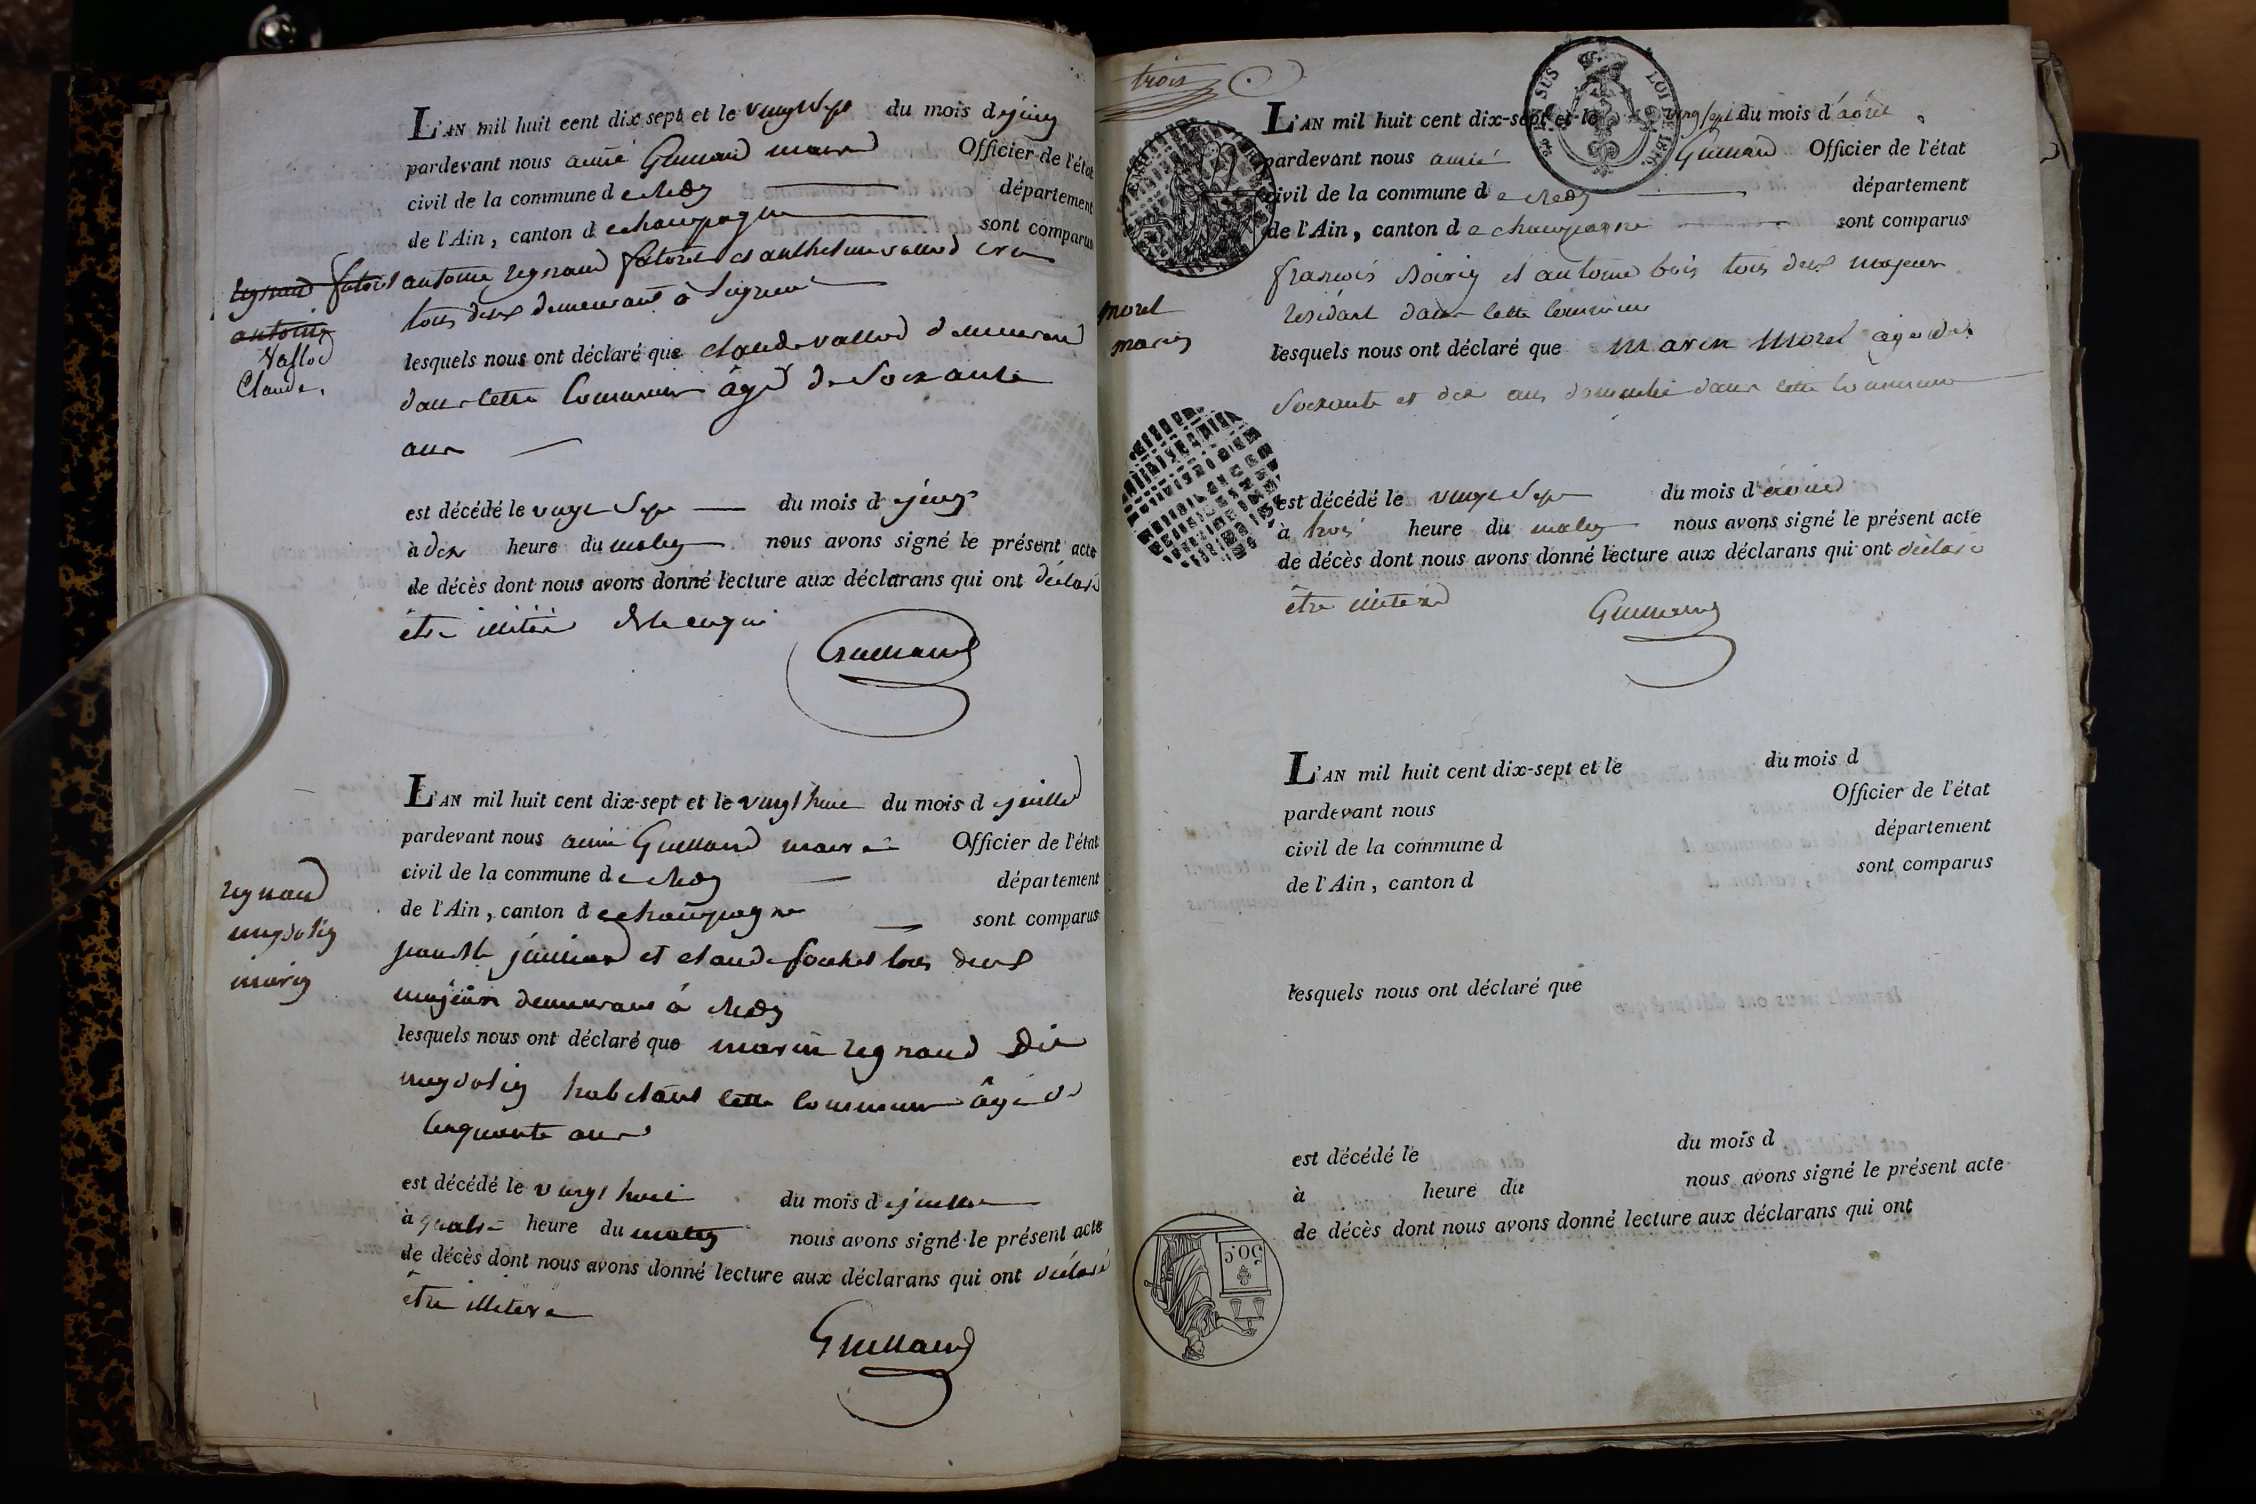 L'AN mil huit cent dix-sept et le vingt sept du mois de juin
pardevant nous aimé Guilland maire Officier de l'état
civil de la commune de
département
de l'Ain, canton de champagne sont comparus
regnaud antoine regnaud et anthelme vallod
antoine
tous deux demeurant à
Vallod
Claude.
lesquels nous ont déclaré que claude vallod demeurant
dans cette commune âgé de soixante
ans
est décédé le vingt sept du mois de juin
à dix heure du matin nous avons signé le présent acte
de décès dont nous avons donné lecture aux déclarans qui ont déclaré
être illiteré de ce enqui
Guilland
L'AN mil huit cent dix-sept et le vingt huit du mois de juillet
pardevant nous aimé Guilland maire Officier de l'état
civil de la commune de
département
de l'Ain, canton de champagne sont comparus
regnaud
marin
et claude tous deux
majeur demeurant à
lesquels nous ont déclaré que marin regnaud dit
habitant cette commune âgé de
cinquante ans
est décédé le vingt huit du mois de juillet
à quatre heure du matin nous avons signé le présent acte
de décès dont nous avons donné lecture aux déclarans qui ont déclaré
être illiteré
Guilland
trois
EN SUS LOI DE 1816.
L'AN mil huit cent dix-sept et le vingt sept du mois d'avril
pardevant nous aimé Guilland Officier de l'état
civil de la commune de
département
de l'Ain, canton de champagne sont comparus
françois et antoine bois tous deux majeur
résidant dans cette commune
morel
marin
lesquels nous ont déclaré que marin morel agé de
soixante et dix ans domicilié dans cette commune
est décédé le vingt sept du mois d'
à trois heure du matin nous avons signé le présent acte
de décès dont nous avons donné lecture aux déclarans qui ont déclaré
être illiteré
Guilland
L'AN mil huit cent dix-sept et le du mois d
pardevant nous Officier de l'état
civil de la commune d
département
de l'Ain, canton d sont comparus
lesquels nous ont déclaré que
est décédé le du mois d
à heure du nous avons signé le présent acte
de décès dont nous avons donné lecture aux déclarans qui ont
50.c